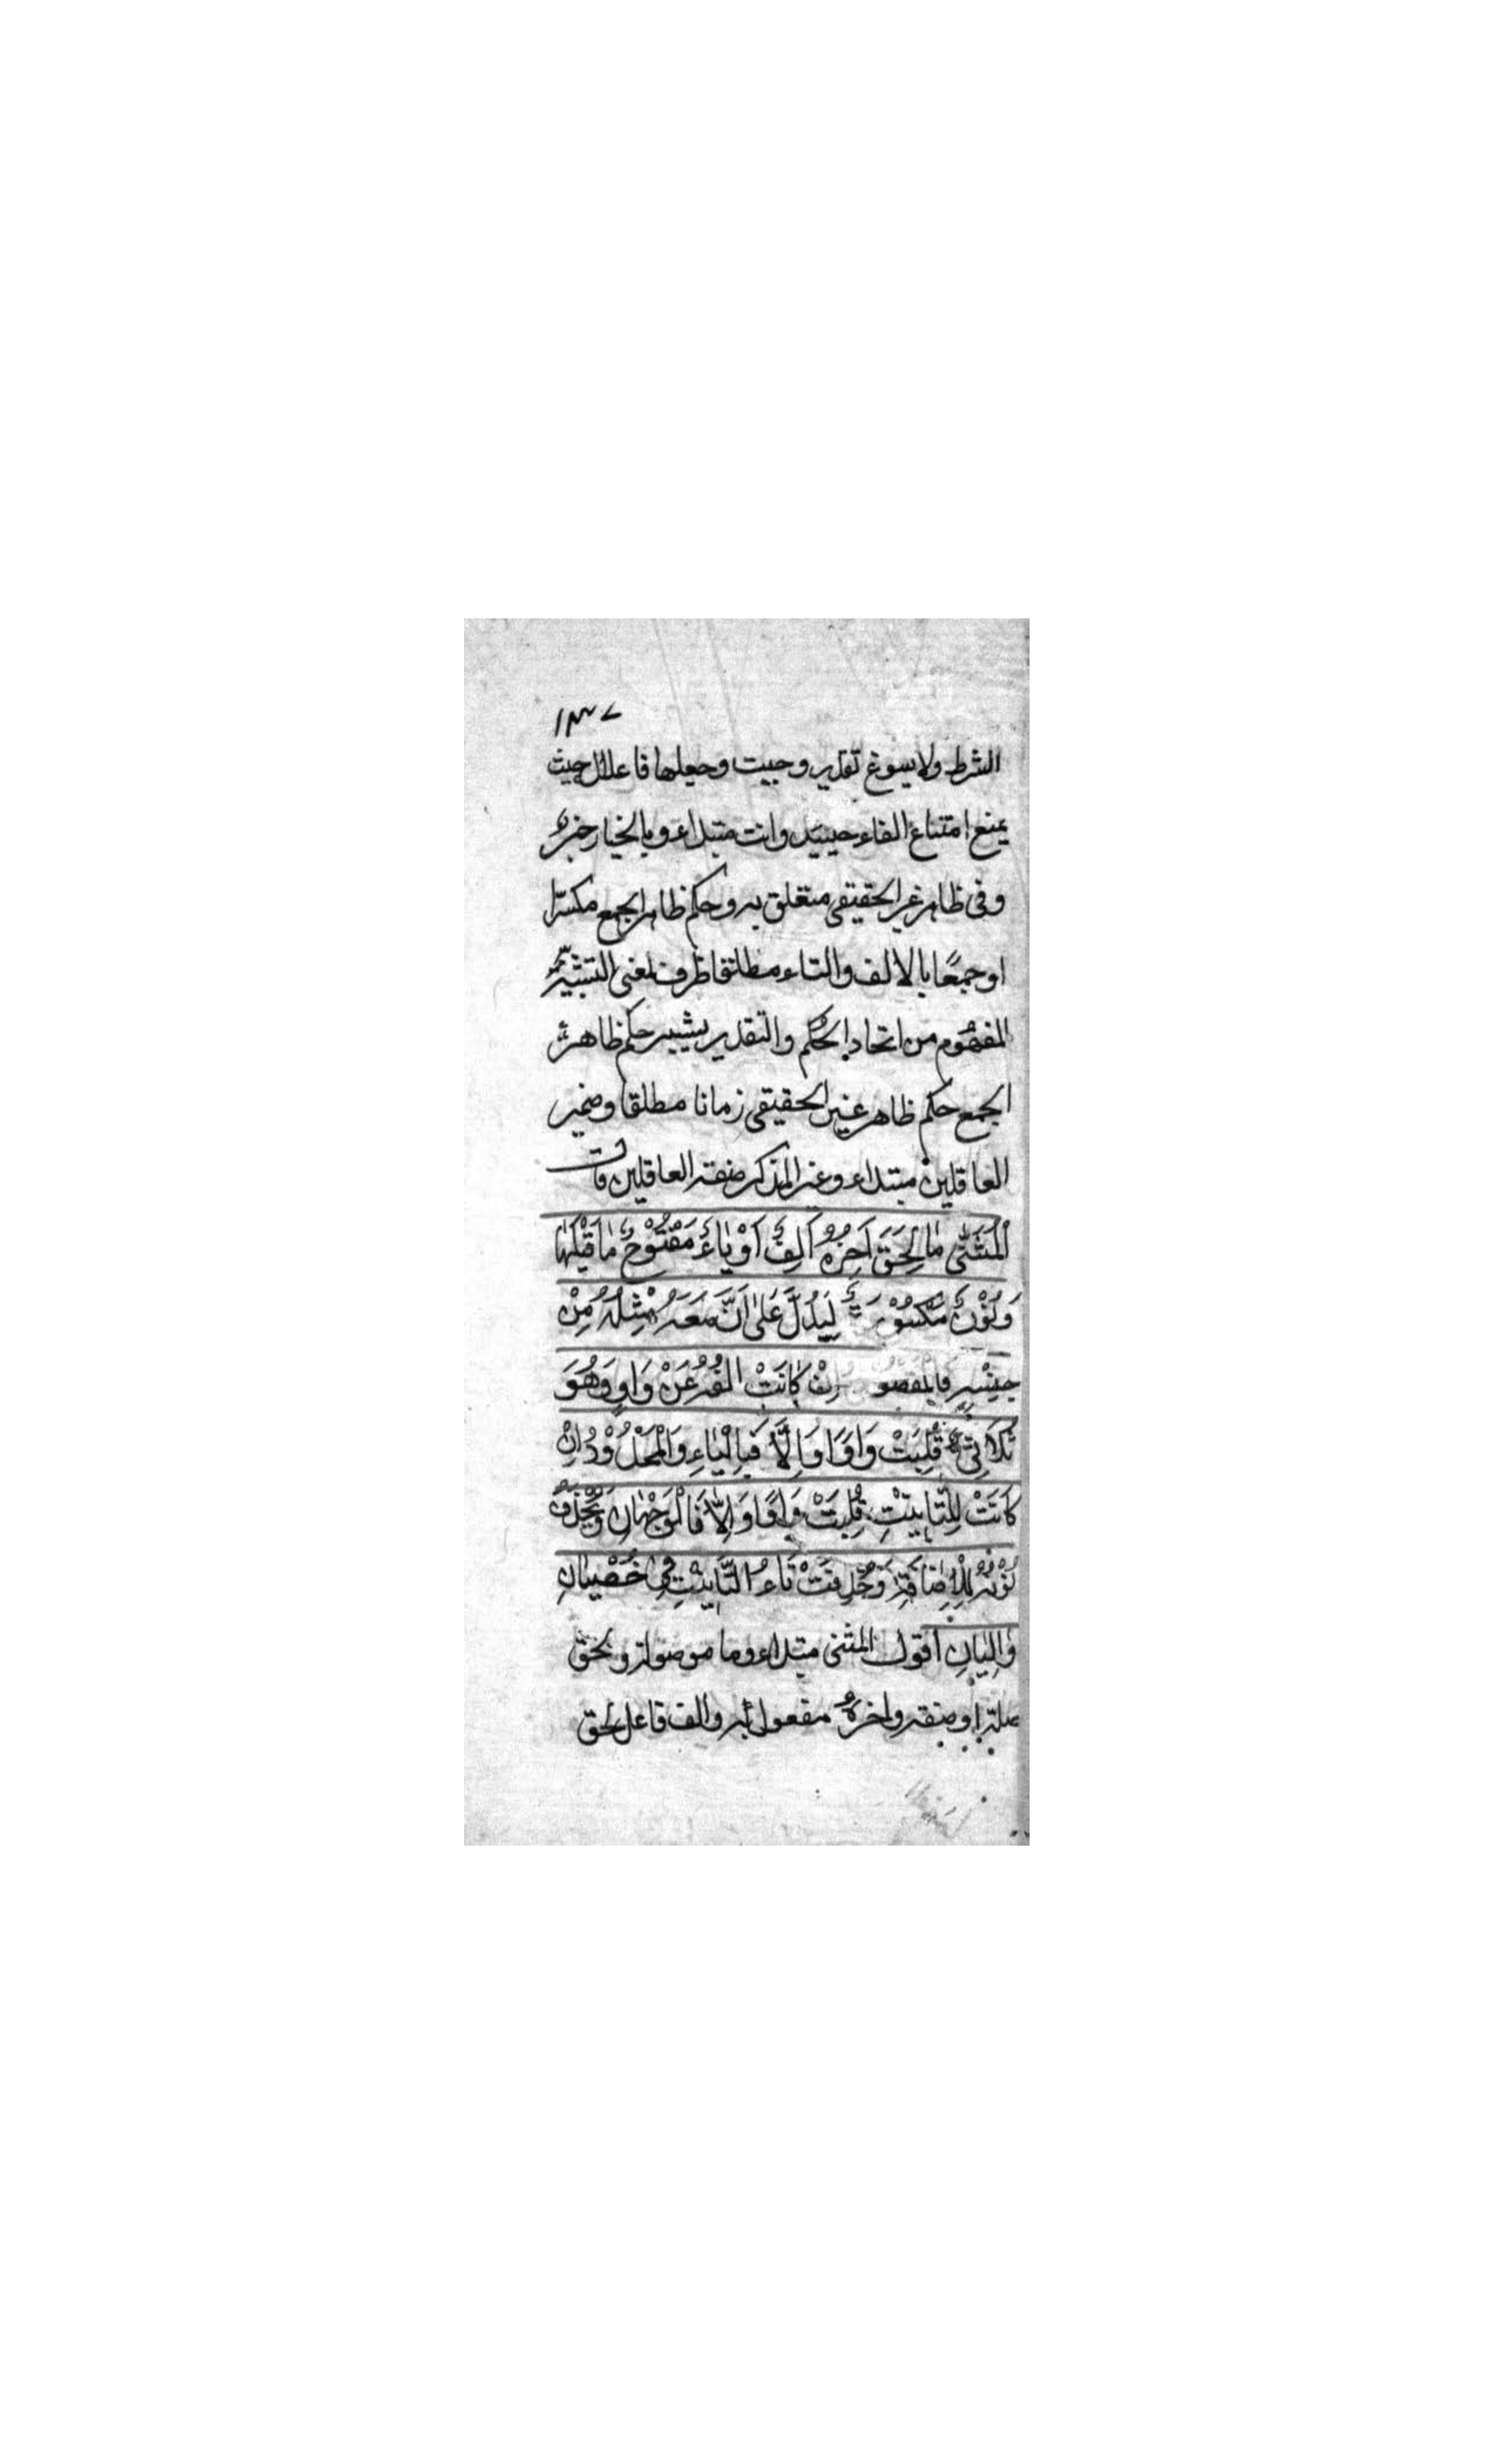 ١٣٧
الشرط ولا يسوغ تقدير وجبت وجعلها فاعلا لل حيث
يمنع امتناع الفاء حينئذ وانت مبتداء وبالخيار خبره
وفى ظاهر غير الحقيقى متعلق به وحكم ظاهر الجمع مكسرا
او جمعًا بالالف والتاء مطلقا ظرف لمعنى التشبيه
المفهوم من اتحاد الحكم والتقدير يشبه حكم ظاهر
الجمع حكم ظاهر غير الحقيقى زمانا مطلقا وضمير
العاقلين مبتداء وغير المذكر صفة العاقلين قال
اَلْمُثَنّٰى مَا لَحِقَ اٰخِرَهُ اَلِفٌ اَوْ يَاءٌ مَفْتُوْحٌ مَا قَبْلَهَا
وَنُوْنٌ مَكْسُوْرَةٌ لِيَدُلَّ عَلٰى اَنَّ مَعَهُ مِثْلَهُ مِنْ
جِنْسِهِ فَالْمَقْصُوْ اِنْ كَانَتْ اَلِفُهُ عَنْ وَاوٍ وَهُوَ
ثُلَاثِىٌّ قُلِبَتْ وَاوًا وَاِلَّا فَبِالْيَاءِ وَالْمَمْدُوْدُ اِنْ
كَانَتْ لِلتَّانِيْثِ قُلِبَتْ وَاوًا وَاِلَّا فَالْوَجْهَانِ وَيُحْذَفُ
نُوْنُهُ لِلْاِضَافَةِ وَحُذِفَتْ تَاءُ التَّانِيْثِ فِىْ خُصْيَانِ
وَاَلْيَانِ اقول المثنى مبتداء وما موصولة ولحق
صلته او صفته واخره مفعول به والف فاعل لحق